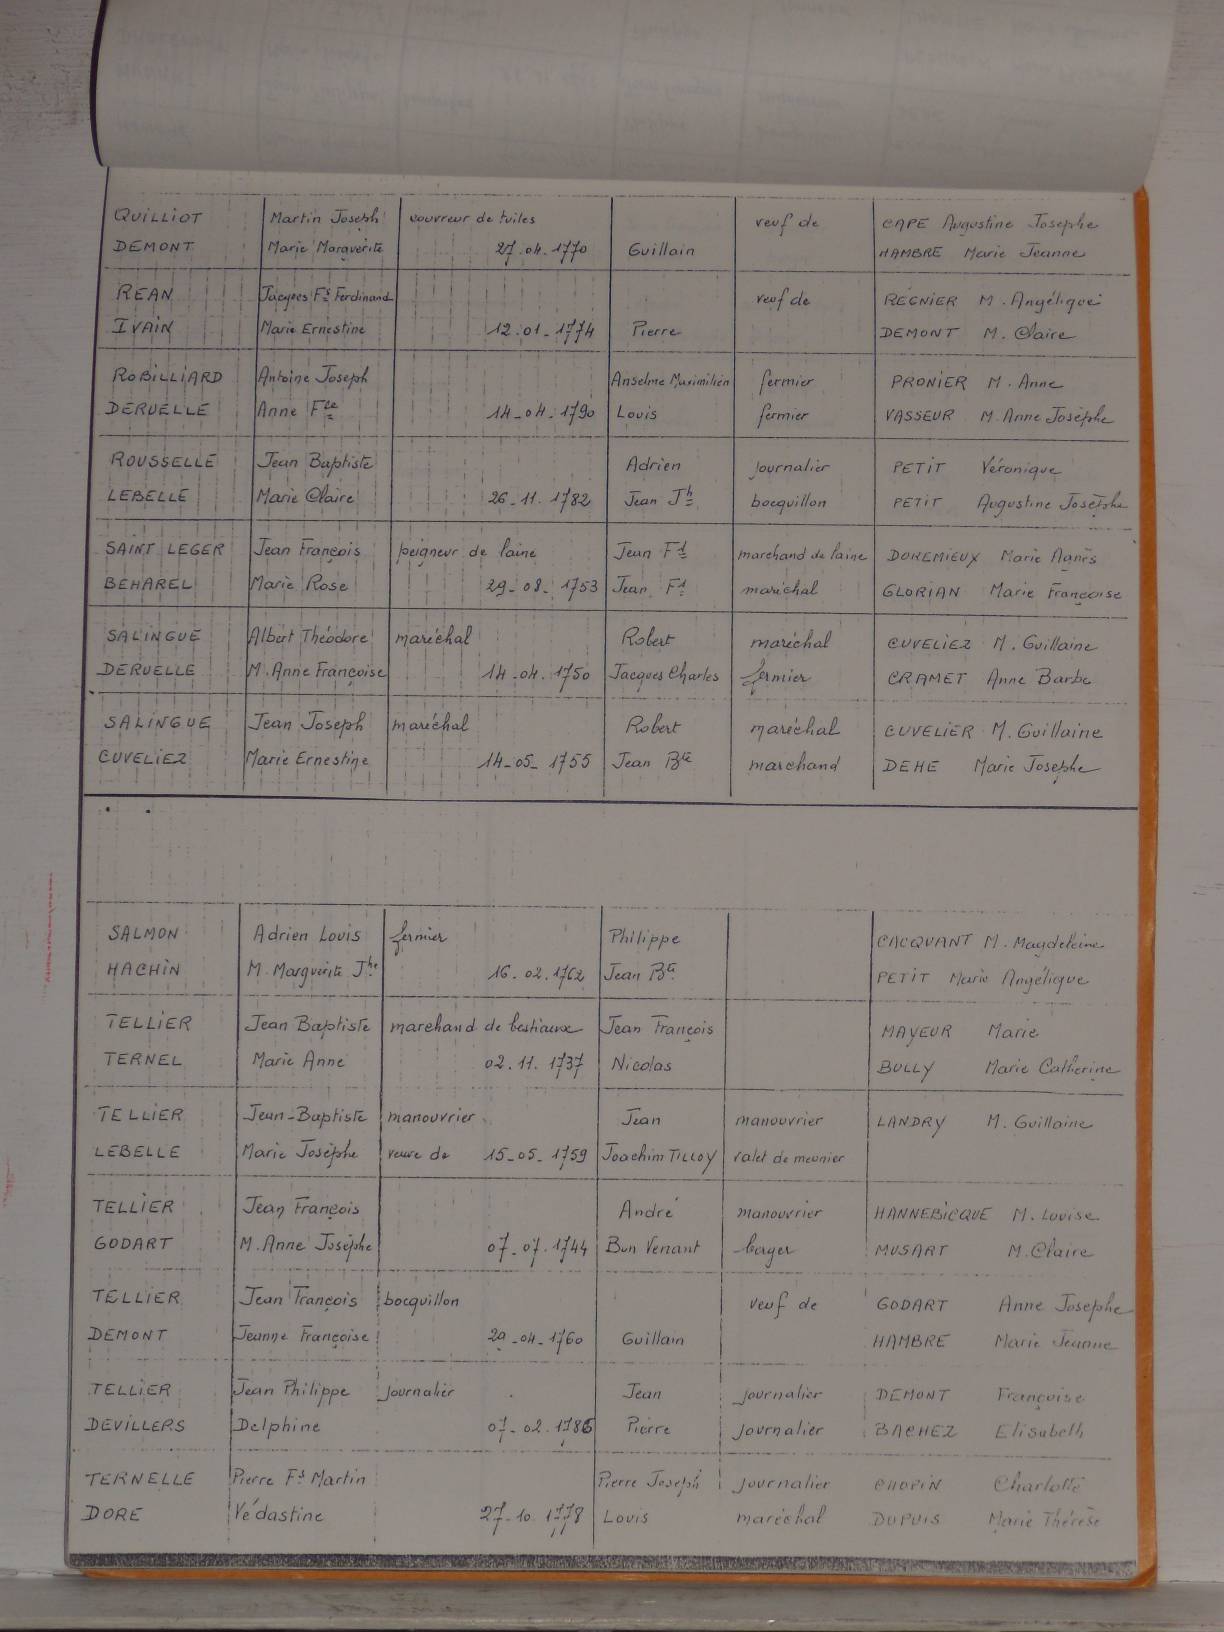 QUILLIOT Martin Joseph couvreur de tuiles veuf de CAPE Augustine Josephe
DEMONT Marie Marguerite 27.04.1770 Guillain HAMBRE Marie Jeanne
REAN Jacques Fs Ferdinand veuf de REGNIER M. Angélique
IVAIN Marie Ernestine 12.01-1774 Pierre DEMONT M. Claire
ROBILLIARD Antoine Joseph Anselme Maximilien fermier PRONIER M. Anne
DERUELLE Anne Fçe 14-04-1790 Louis fermier VASSEUR M. Anne Josèphe
ROUSSELLE Jean Baptiste Adrien journalier PETIT Véronique
LEBELLE Marie Claire 26-11.1782 Jean Jh bocquillon PETIT Augustine Josèphe
SAINT LEGER Jean François peigneur de laine Jean Fs marchand de laine DOREMIEUX Marie Agnès
BEHAREL Marie Rose 29-08-1753 Jean Fs maréchal GLORIAN Marie Françoise
SALINGUE Albert Théodore maréchal Robert maréchal CUVELIEZ M. Guillaine
DERUELLE M. Anne Françoise 14-04.1750 Jacques Charles fermier CRAMET Anne Barbe
SALINGUE Jean Joseph maréchal Robert maréchal CUVELIER M. Guillaine
CUVELIEZ Marie Ernestine 14-05-1755 Jean Bte marchand DEHE Marie Josephe
SALMON Adrien Louis fermier Philippe CACQUANT M. Magdeleine
HACHIN M. Marguerite Jhe 16.02.1762 Jean Bte PETIT Marie Angélique
TELLIER Jean Baptiste marchand de bestiaux Jean François MAYEUR Marie
TERNEL Marie Anne 02.11.1737 Nicolas BULLY Marie Catherine
TELLIER Jean-Baptiste manouvrier Jean manouvrier LANDRY M. Guillaine
LEBELLE Marie Josèphe veuve de 15-05-1759 Joachim TILLOY valet de meunier
TELLIER Jean François André manouvrier HANNEBICQUE M. Louise
GODART M. Anne Josèphe 07-07.1744 Bon Venant berger MUSART M. Claire
TELLIER Jean François bocquillon veuf de GODART Anne Josephe
DEMONT Jeanne Françoise 29-04-1760 Guillain HAMBRE Marie Jeanne
TELLIER Jean Philippe journalier Jean journalier DEMONT Françoise
DEVILLERS Delphine 07-02.1786 Pierre journalier BACHEZ Elisabeth
TERNELLE Pierre Fs Martin Pierre Joseph journalier CHOPIN Charlotte
DORE Védastine 27-10.1778 Louis maréchal DUPUIS Marie Thérèse